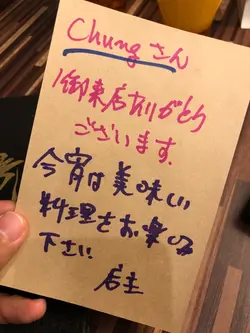 Chungさん
御来店ありがとう
ございます.
今宵は美味しい
料理をお楽しみ
下さい
店主